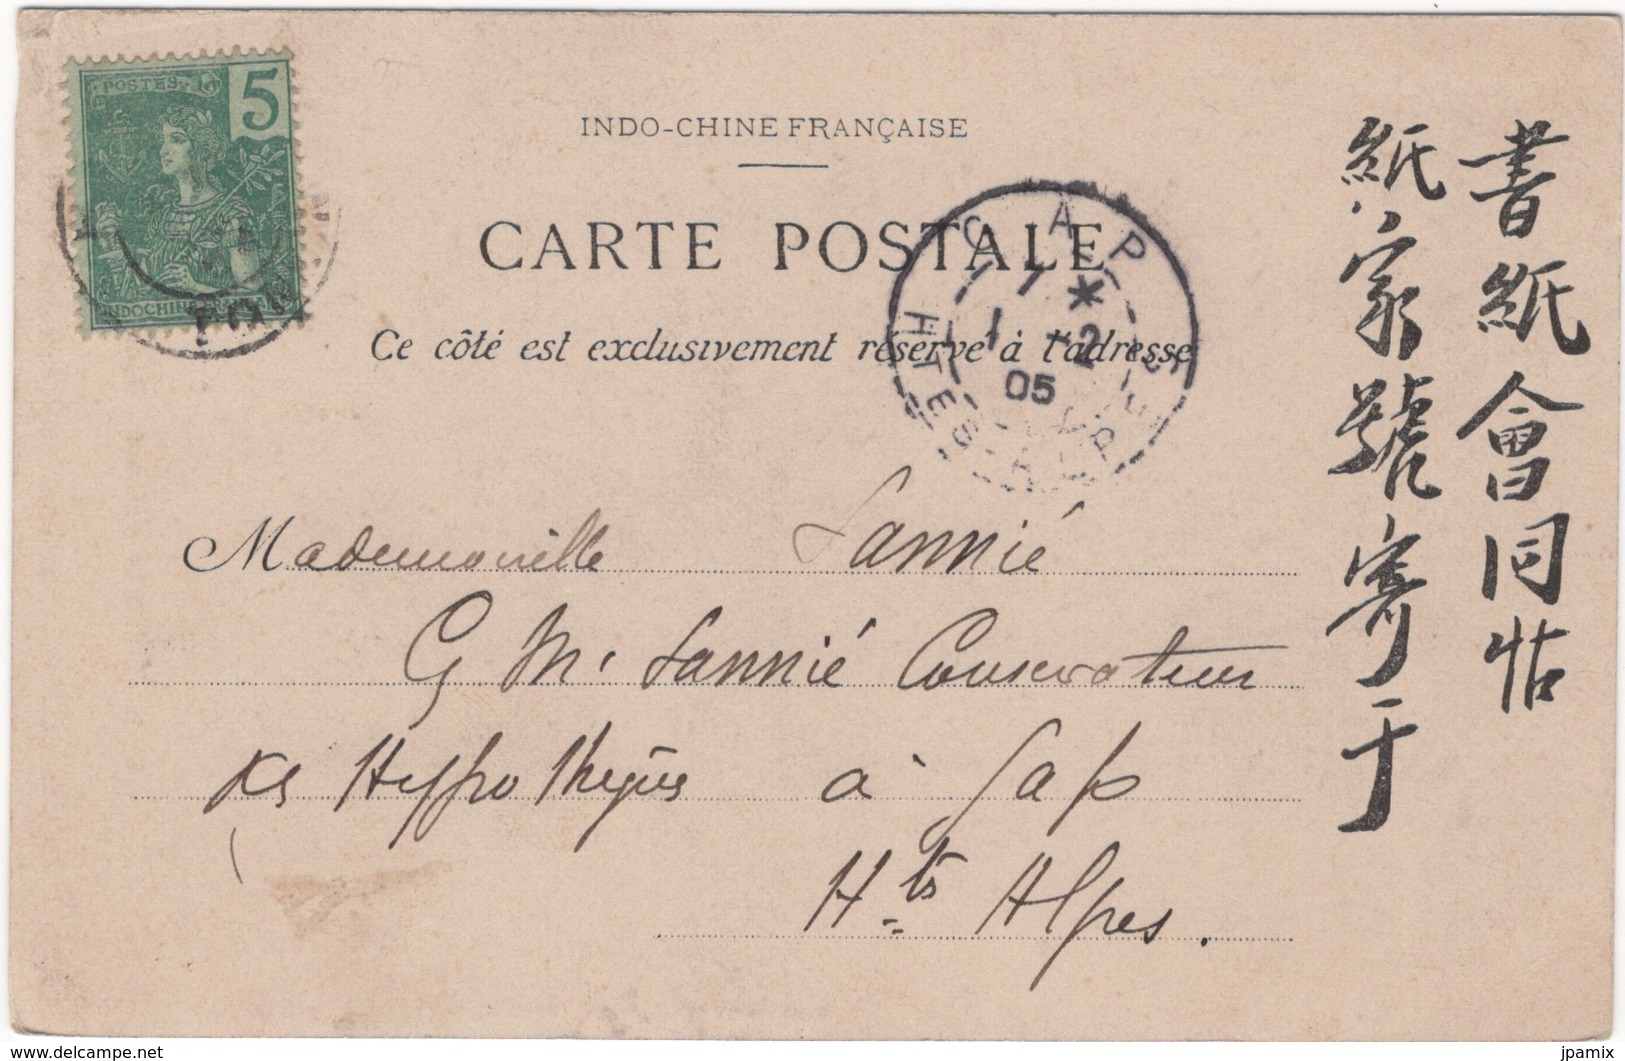 POSTES
5
INDOCHINE
INDO-CHINE FRANÇAISE
CARTE POSTALE
Ce côté est exclusivement réservé à l'adresse
GAP
7 *
1 -2
05
HTES-ALPES
Mademoiselle Lannié
C/ Mr Lannié Conservateur
des Hypothèques à Gap
Hts Alpes.
書紙會同帖
紙家號寄于
delcampe.net
jpamix